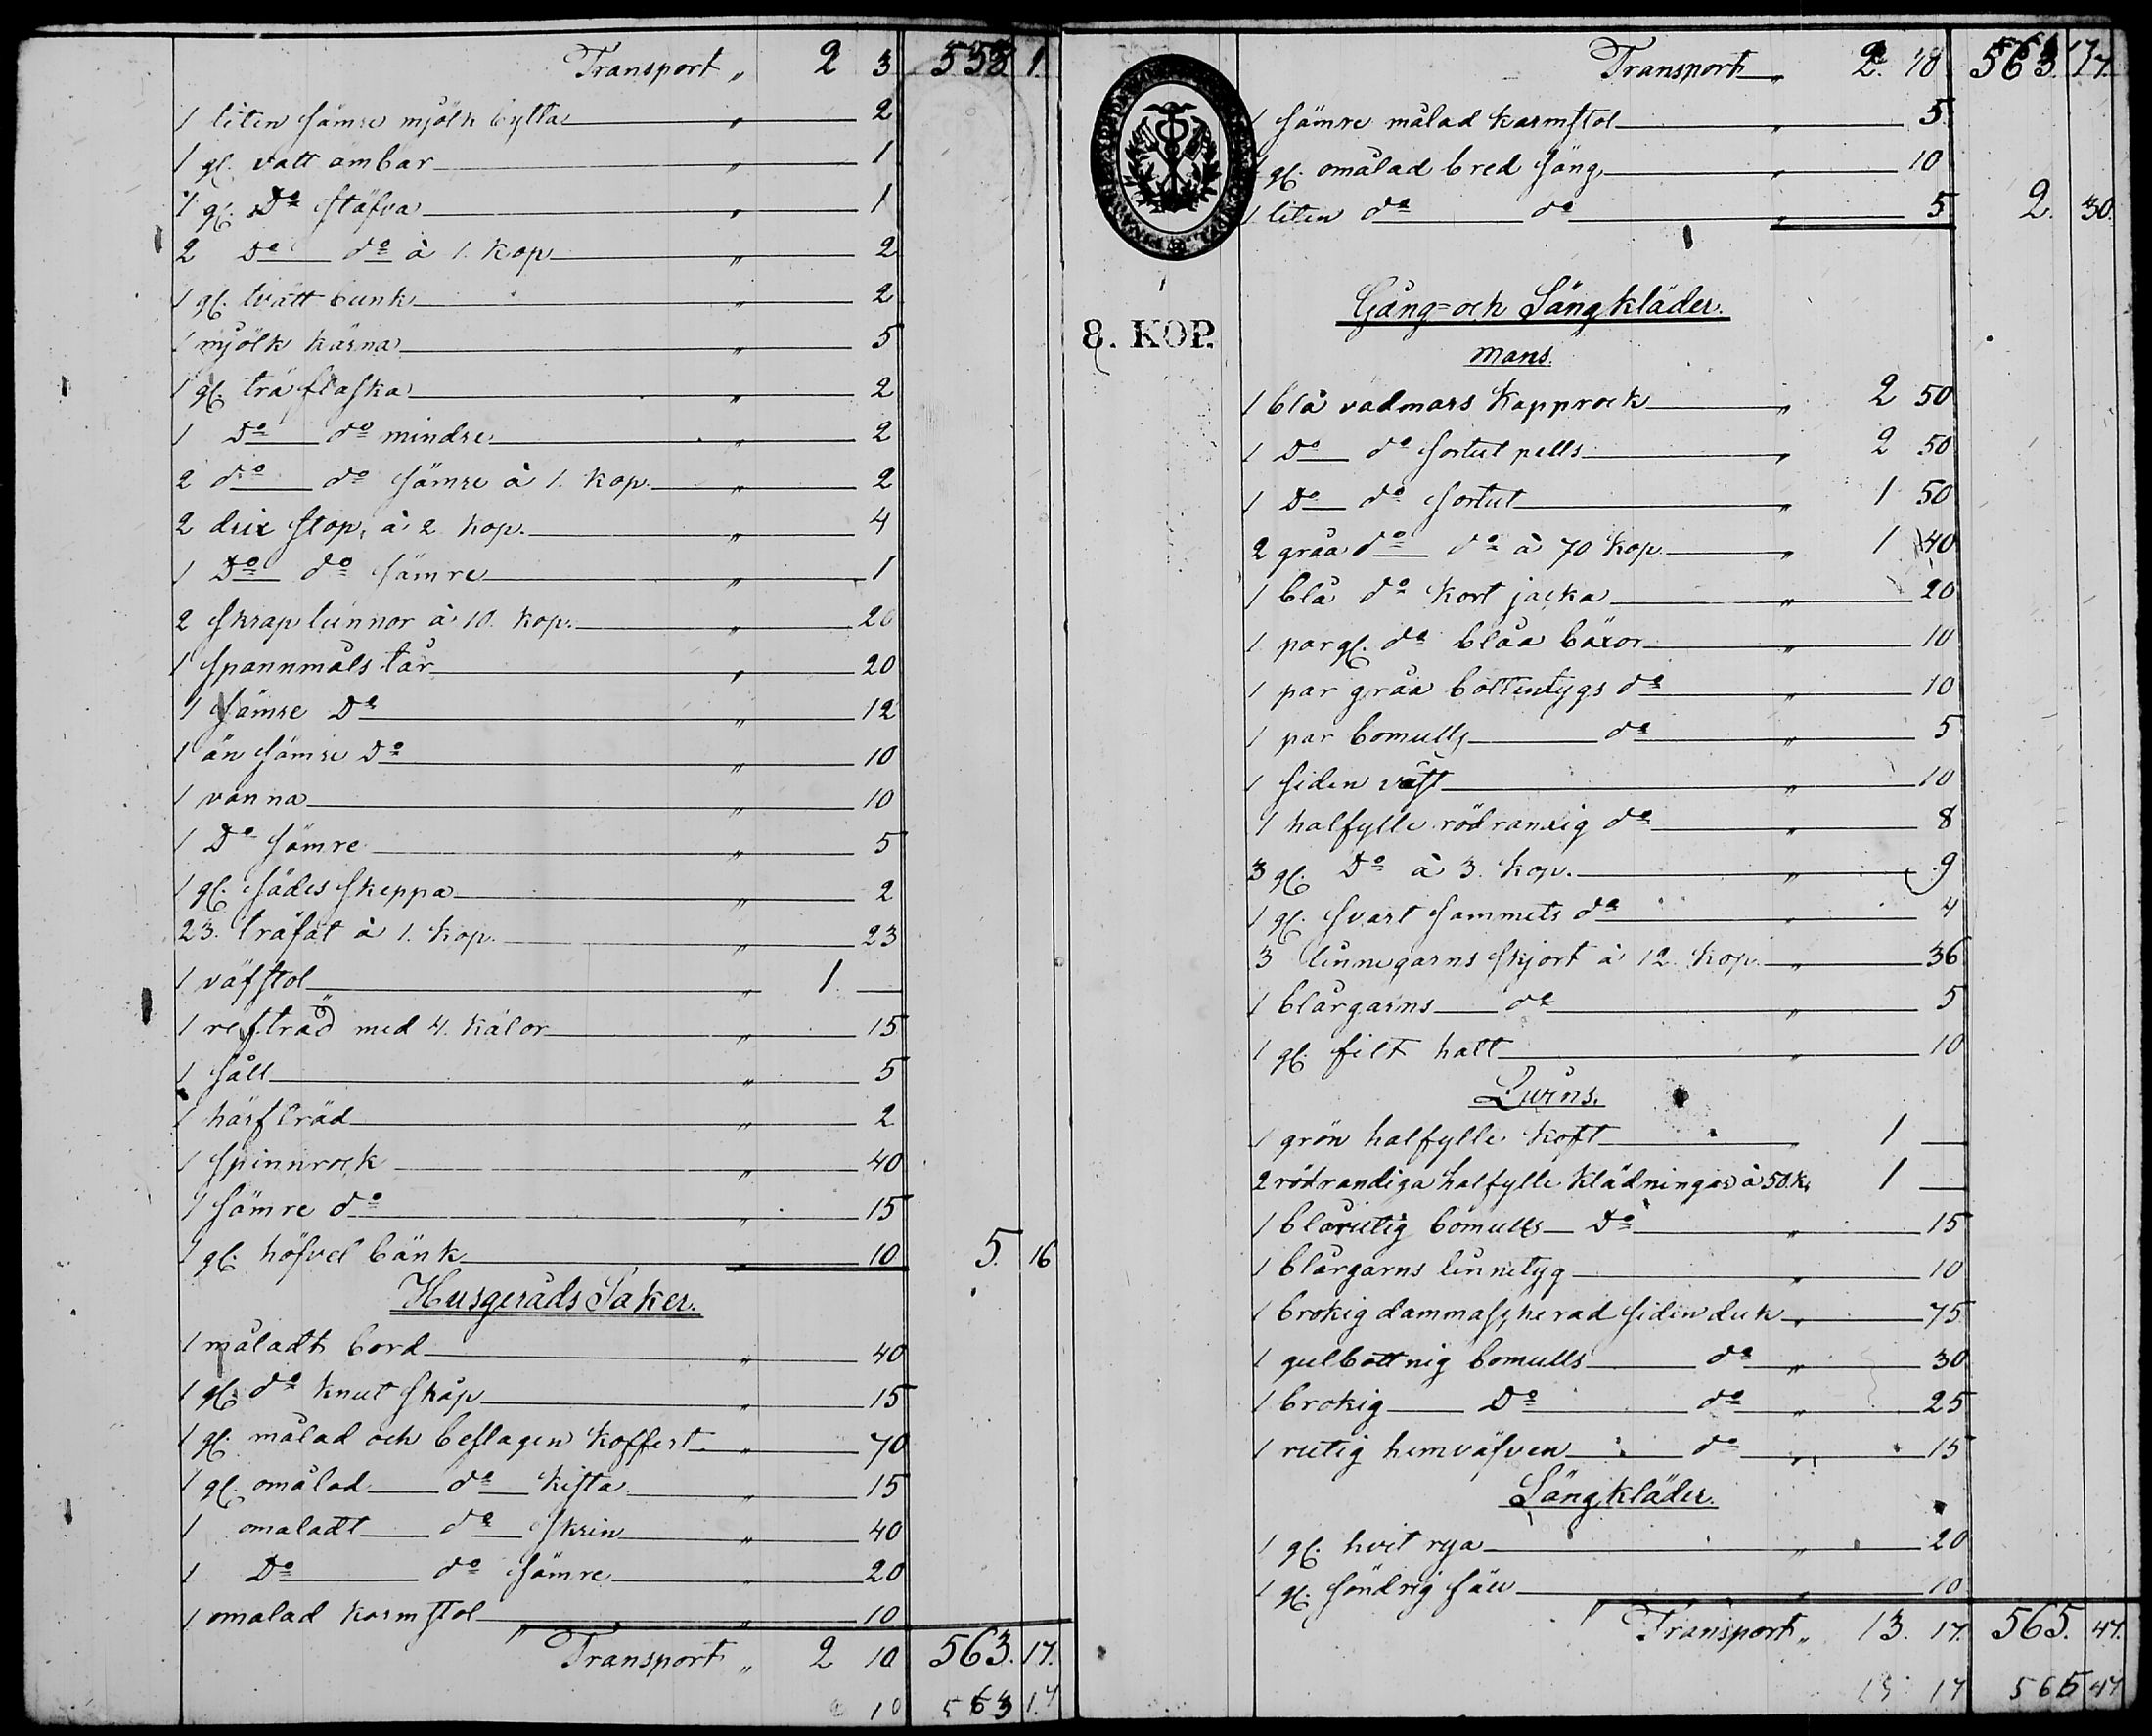 Transport " 2 3 558 1.
1 liten sämre mjölk bytta " 2
1 gl. vatt ämbar " 1
1 gl. Do stäfva " 1
2 Do do à 1. kop " 2
1 gl. tvätt bunk " 2
1 mjölk kärna " 5
1 gl. trä flaska " 2
1 Do do mindre " 2
2 do do sämre à 1. kop. " 2
2 drix stop, à 2 kop. " 4
1 Do do sämre " 1
2 skrap tunnor à 10. kop. " 20
1 spannmåls lår " 20
1 sämre Do " 12
1 än sämre Do " 10
1 vanna " 10
1 Do sämre " 5
1 gl. sädes skeppa " 2
23. träfat à 1. kop. " 23
1 väfstol " 1 —
1 refträd med 4. kälor " 15
1 såll " 5
1 härfträd " 2
1 spinnrock " 40
1 sämre do " 15
1 gl. höfvel bänk 10 5. 16
Husgeråds Saker.
1 måladt bord " 40
1 gl. do knut skåp " 15
1 gl. målad och beslagen koffert " 70
1 gl. omålad do kista " 15
1 omaladt do skrin " 40
1 Do do sämre " 20
1 omalad karmstol " 10
Transport " 2 10 563. 17.
10 563 17
Transport " 2. 18 563. 17.
1 sämre målad karmstol " 5
1 gl. omålad bred säng " 10
1 liten do do " 5 2. 30.
8. KOP.
Gång= och Sängkläder.
mans.
1 blå vadmars kapprock " 2 50
1 Do do sortut pells " 2 50
1 Do do sortut " 1 50
2 gråa do do à 70 kop " 1 40
1 blå do kort jacka " 20
1 par gl. do blåa bäxor " 10
1 par gråa boltentygs do " 10
1 par bomulls do " 5
1 siden väst " 10
1 halfylle rödrandig do " 8
3 gl. Do à 3. kop. " 9
1 gl. svart sammets do " 4
3 linnegarns skjort à 12. kop " 36
1 blårgarns do " 5
1 gl. filt hatt " 10
Qvins.
1 grön halfylle koft " 1 —
2 rödrandiga halfylle klädningar à 50. k. 1 —
1 blårutig bomulls Do " 15
1 blårgarns linnetyg " 10
1 brokig dammascherad siden duk " 75
1 gulbottnig bomulls do " 30
1 brokig Do do " 25
1 rutig hemväfven do " 15
Sängkläder.
1 gl. hvit rya " 20
1 gl. söndrig fäll " 10
Transport " 13. 17. 565. 47.
13 17 565 47